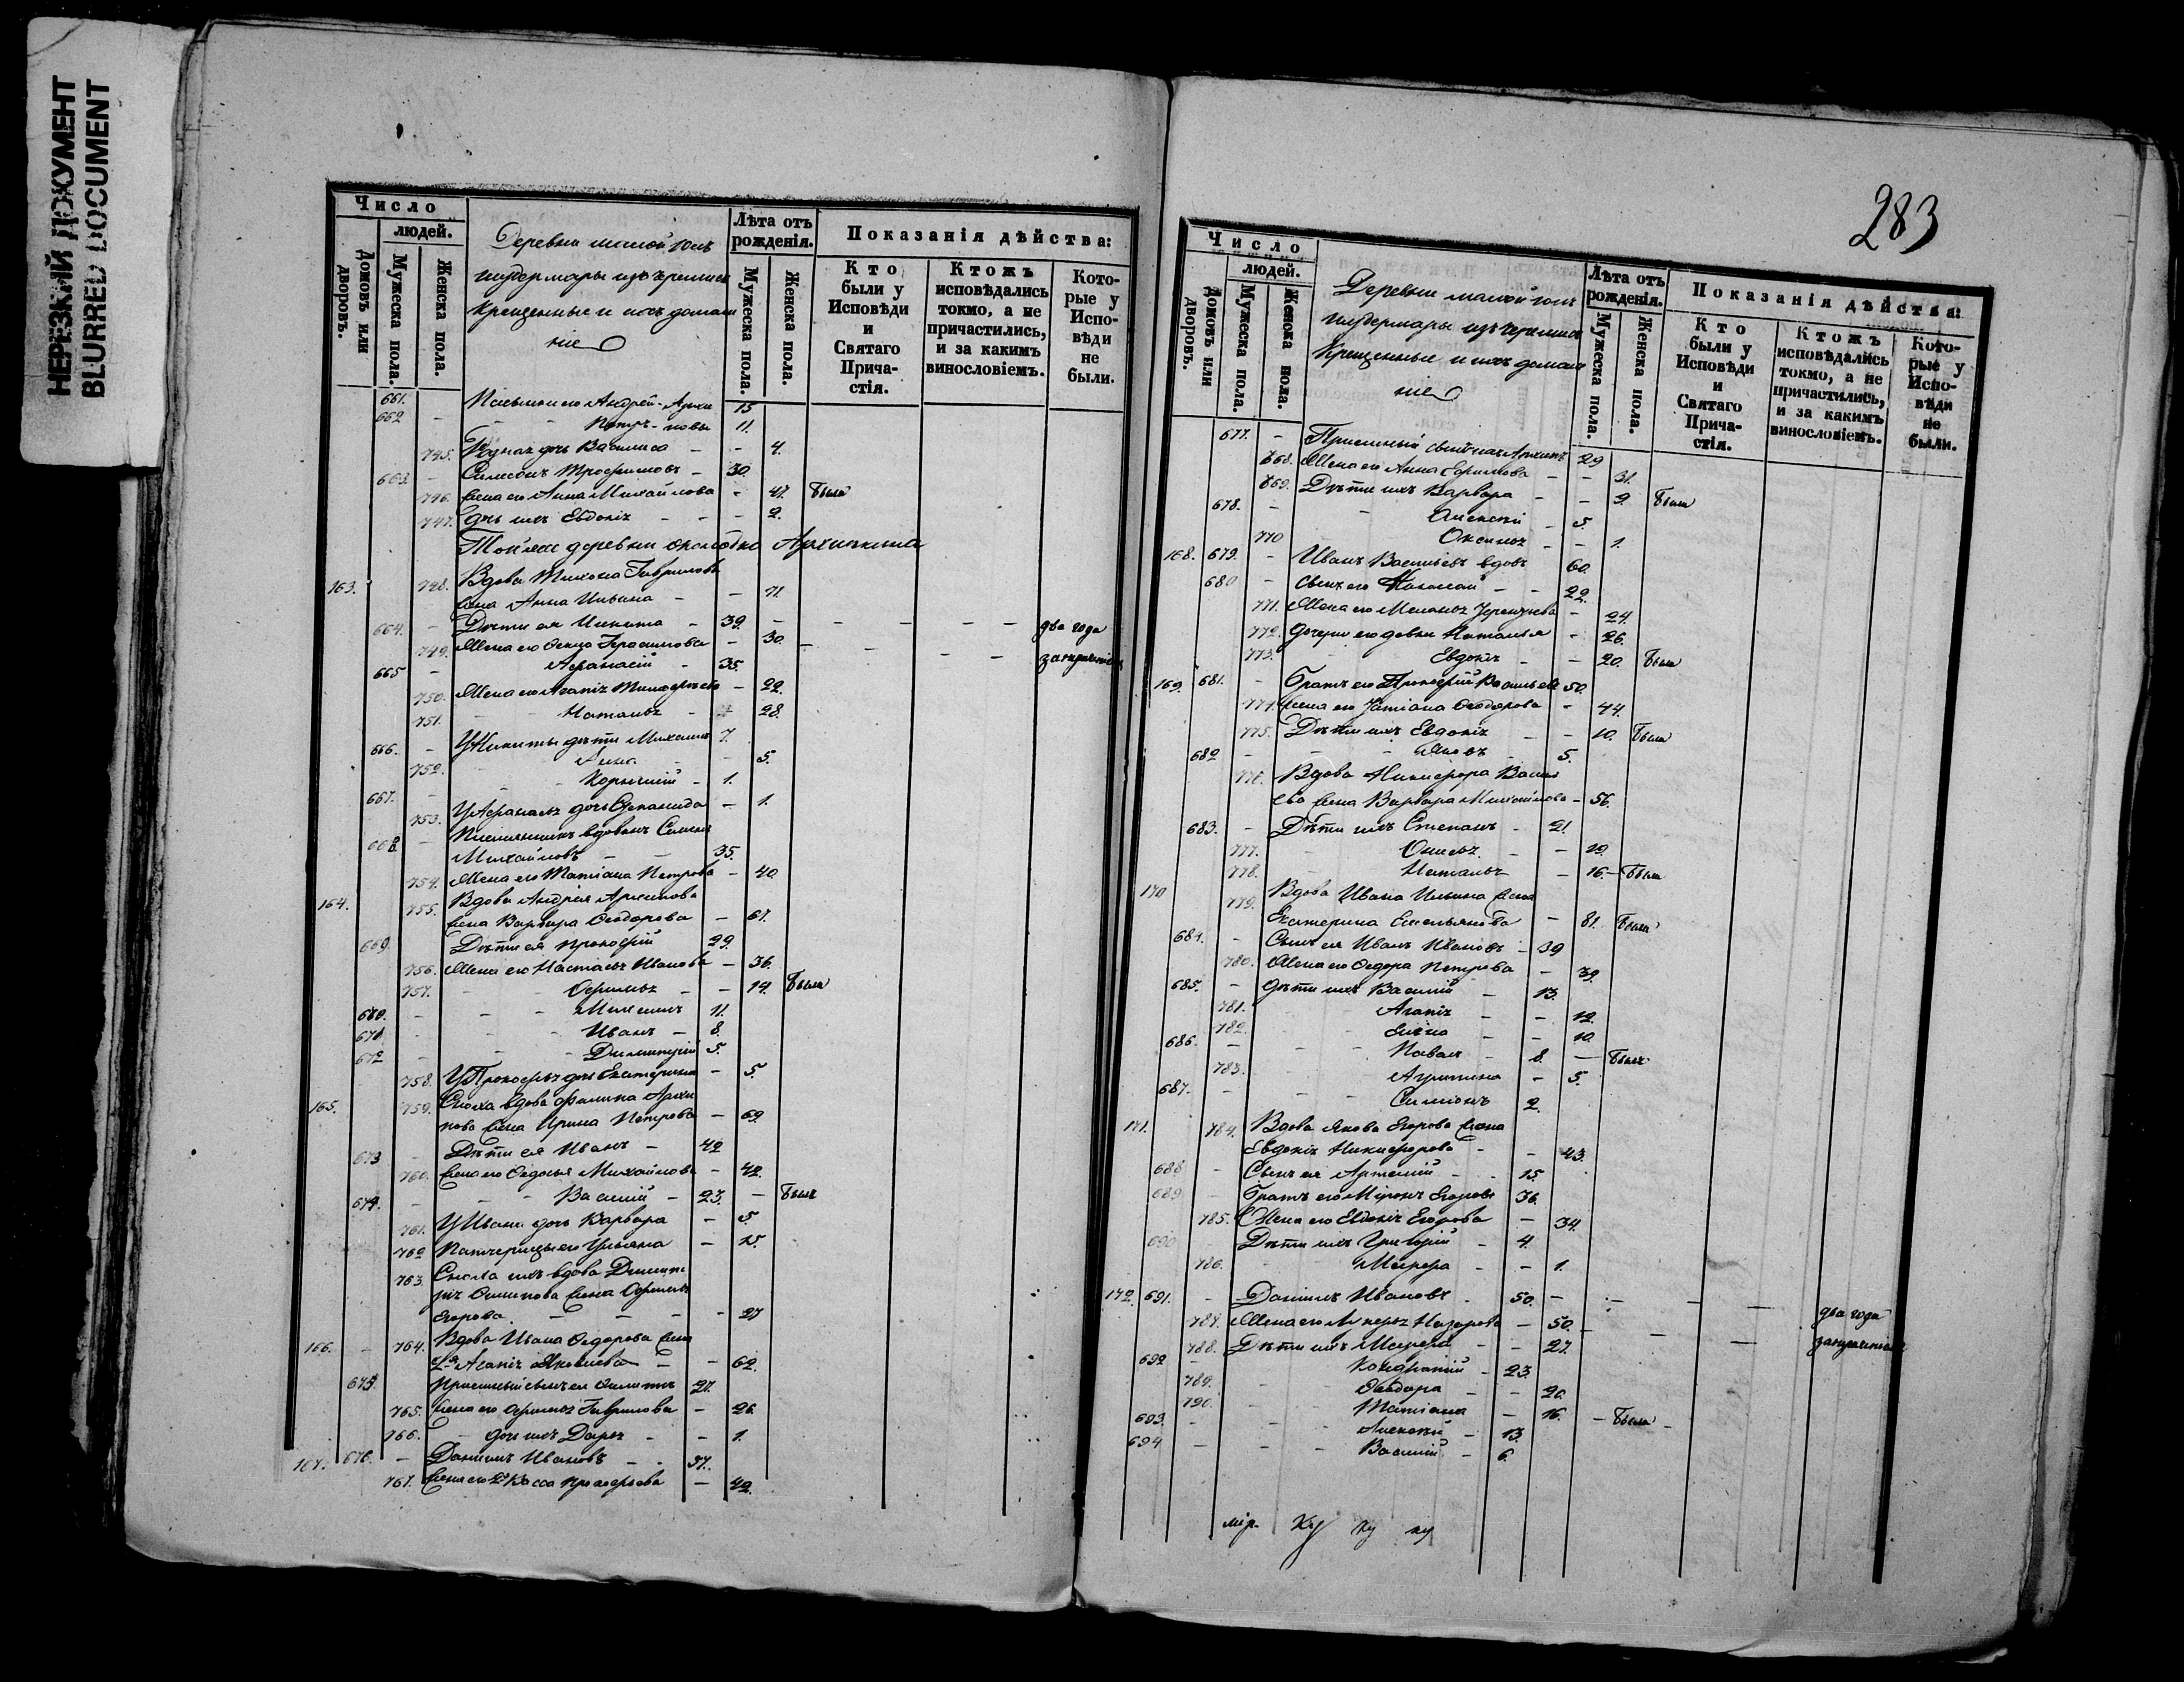 НЕРЕЗКИЙ ДОКУМЕНТ
BLURRED DOCUMENT
Число
людей.
Домовъ или дворовъ.
Мужеска пола.
Женска пола.
Деревни малой юль
шудермары изъ черемис
крещенные и ихъ домаш
ніе
Лѣта отъ рожденія.
Мужеска пола.
Женска пола.
Показанія дѣйства:
Кто были у Исповѣди и Святаго Причастія.
Ктожъ исповѣдались токмо, а не причастились, и за какимъ винословіемъ.
Которые у Исповѣди не были.
661. Андрей 15
662 Петръ 11.
745. Родная дочь Василиса - - 4.
663. Трофимовъ - 30.
746. жена его Анна Михайлова - 47. была
747. дочь ихъ Евдокія - - - 2.
Тойже деревни околодка Архипкина
163. 748. Вдова Тихона Гаврилова
жена Анна Ильина - - 71.
664. - Дѣти ея Никита - 39. - - - - - два года
749. Жена его Герасимова - 30.
665 - Афанасій - 35.
750. Жена его Агапія - 22.
751. Наталья - 28.
666. - У Никиты дѣти Михаилъ 7.
752. Анна - - 5.
667. - Корнилій - 1.
753. У Афанасья дочь Степанида - 1.
668. - Племянникъ вдовы
Михайловъ - - 35.
754. Жена его Татіана Петрова - 40.
164. 755. Вдова Андрея Архипова
жена Варвара Феодорова - 67.
669. Дѣти ея Прокофій 29.
756. Жена его Настасья Иванова - 36.
757. - - 14. была
670. - - - 11.
671. - Иванъ - 8.
672 - - Димитрій 5.
758. У Прокофья дочь Екатерина - 5.
165. 759. Сноха вдова Филипа Архи
пова жена Ирина Петрова - 69.
673 - Дѣти ея Иванъ - 42
760. жена его Федосья Михайлова - 42.
674. - - - Василий - 23. - былъ
761. У Ивана дочь Варвара - 5.
762 Падчерица его Ульяна - 15.
763. Сноха ихъ вдова Димит
рія Филипова жена
Егорова. - - - - 27
166. - 764. Вдова Ивана Федорова жена
Агапія Яковлева - - 62.
675. Приемный сынъ ея Филипъ 27.
765. жена его Гаврилова - 26
766. - дочь ихъ Дарья - - 1.
167. 676. - Даниилъ Ивановъ - - 37.
767. жена его Васса Прокофьева - 42.
283
Число
людей.
Домовъ или дворовъ.
Мужеска пола.
Женска пола.
Деревни малой юль
шудермары изъ черемис
крещенные и ихъ домаш
ніе
Лѣта отъ рожденія.
Мужеска пола.
Женска пола.
Показанія дѣйства:
Кто были у Исповѣди и Святаго Причастія.
Ктожъ исповѣдались токмо, а не причастились, и за какимъ винословіемъ.
Которые у Исповѣди не были.
677. - Приемный сынъ 29
768. Жена его Анна Ефимова - - 31.
769. Дѣти ихъ Варвара - - 9. была
678. - - Алексѣй - 5.
770 Оксинья - - 1.
168. 679. - Иванъ Васильевъ вдовъ 60.
680 - сынъ его Николай - - 22.
771. Жена его Меланья Терентьева - 24.
772. дочери его девки Наталья - 26.
773. Евдокія - - 20. была
169. 681. - Братъ его Прокофій Васильевъ 50.
774. жена его Татіана Феодорова - 44.
775. Дѣти ихъ Евдокія - - 10. была
682 - - - Яковъ - 5.
776. Вдова Никифора Василь
ева жена Варвара Михайлова - 56.
683. - Дѣти ихъ Степанъ - 21.
777. - 19.
778. Наталья - 16. - была
170 779. Вдова Ивана Ильина жена
Екатерина Емельянова - 81. была
684. - Сынъ ея Иванъ Ивановъ - 39
780. Жена его Федора Петрова - 39.
685. - Дѣти ихъ Василий - 13.
781. Агапія - - 12.
782. Елена - - 10.
686. - - - Павелъ - 8. - былъ
783. Агрипина - 5.
687. - - - Симионъ 2.
171. 784. Вдова Якова Егорова жена
Евдокія Никифорова - - 43.
688 - Сынъ ея Артемій - 15.
689 - Братъ его Миронъ Егоровъ 36.
785. Жена его Евдокія Егорова - 34.
690 - Дѣти ихъ Григорій - 4.
786. - - 1.
172. 691. - Даниилъ Ивановъ - 50. - - - - два года
787. Жена его Назарова - 50. - - -
788. Дѣти ихъ - - 27.
692 - Кондратій - 23.
789. Феодора - - 20.
790. Татіана - 16. - была
693. - Алексѣй - 13.
694 - - - Василий - 6.